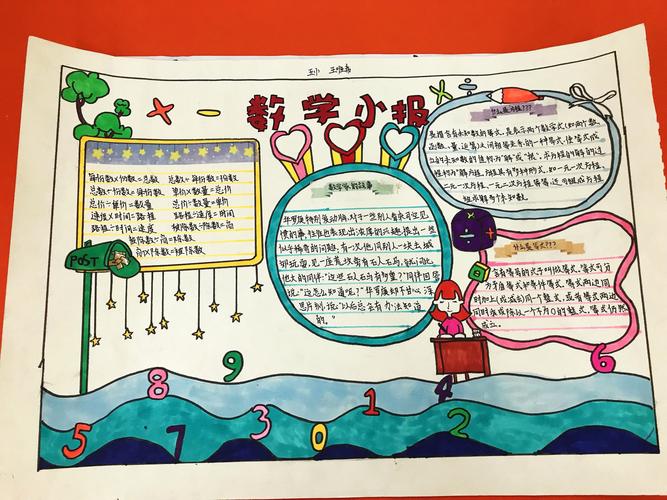 数学小报
每份数×份数=总数 总数÷每份数=份数
总数÷份数=每份数 单价×数量=总价
总价÷单价=数量 总价÷数量=单价
速度×时间=路程 路程÷速度=时间
路程÷时间=速度 被除数÷除数=商
被除数÷商=除数
商×除数=被除数
POST
数学家的故事
华罗庚特别爱动脑,对于一些别人看来司空见
惯的事,往往也表现出浓厚的兴趣,提出一些
似乎稀奇的问题。有一次,他同别人一块去城
郊玩,见一座荒坟旁有石人石马,就问比
他大的同伴:"这些石人石马有多重?"同伴回答
说:"这怎么知道呢?"华罗庚却不甘心,深
思片刻,说:"以后总会有办法知道
的。"
什么是方程???
是指含有未知数的等式,是表示两个数学式(如两个数、
函数、量、运算)之间相等关系的一种等式,使等式成
立的未知数的值称为"解"或"根"。求方程的解的过
程称为"解方程"。方程具有多种形式,如一元一次方程、
二元一次方程、一元二次方程等等,还可组成方程
组求解多个未知数。
什么是等式???
含有等号的式子叫做等式。等式可分
为矛盾等式和条件等式。等式两边同
时加上(或减去)同一个整式,或者等式两边
同时乘或除以一个不为0的整式,等式仍然
成立。
5 8 7 9 3 0 1 4 2 6